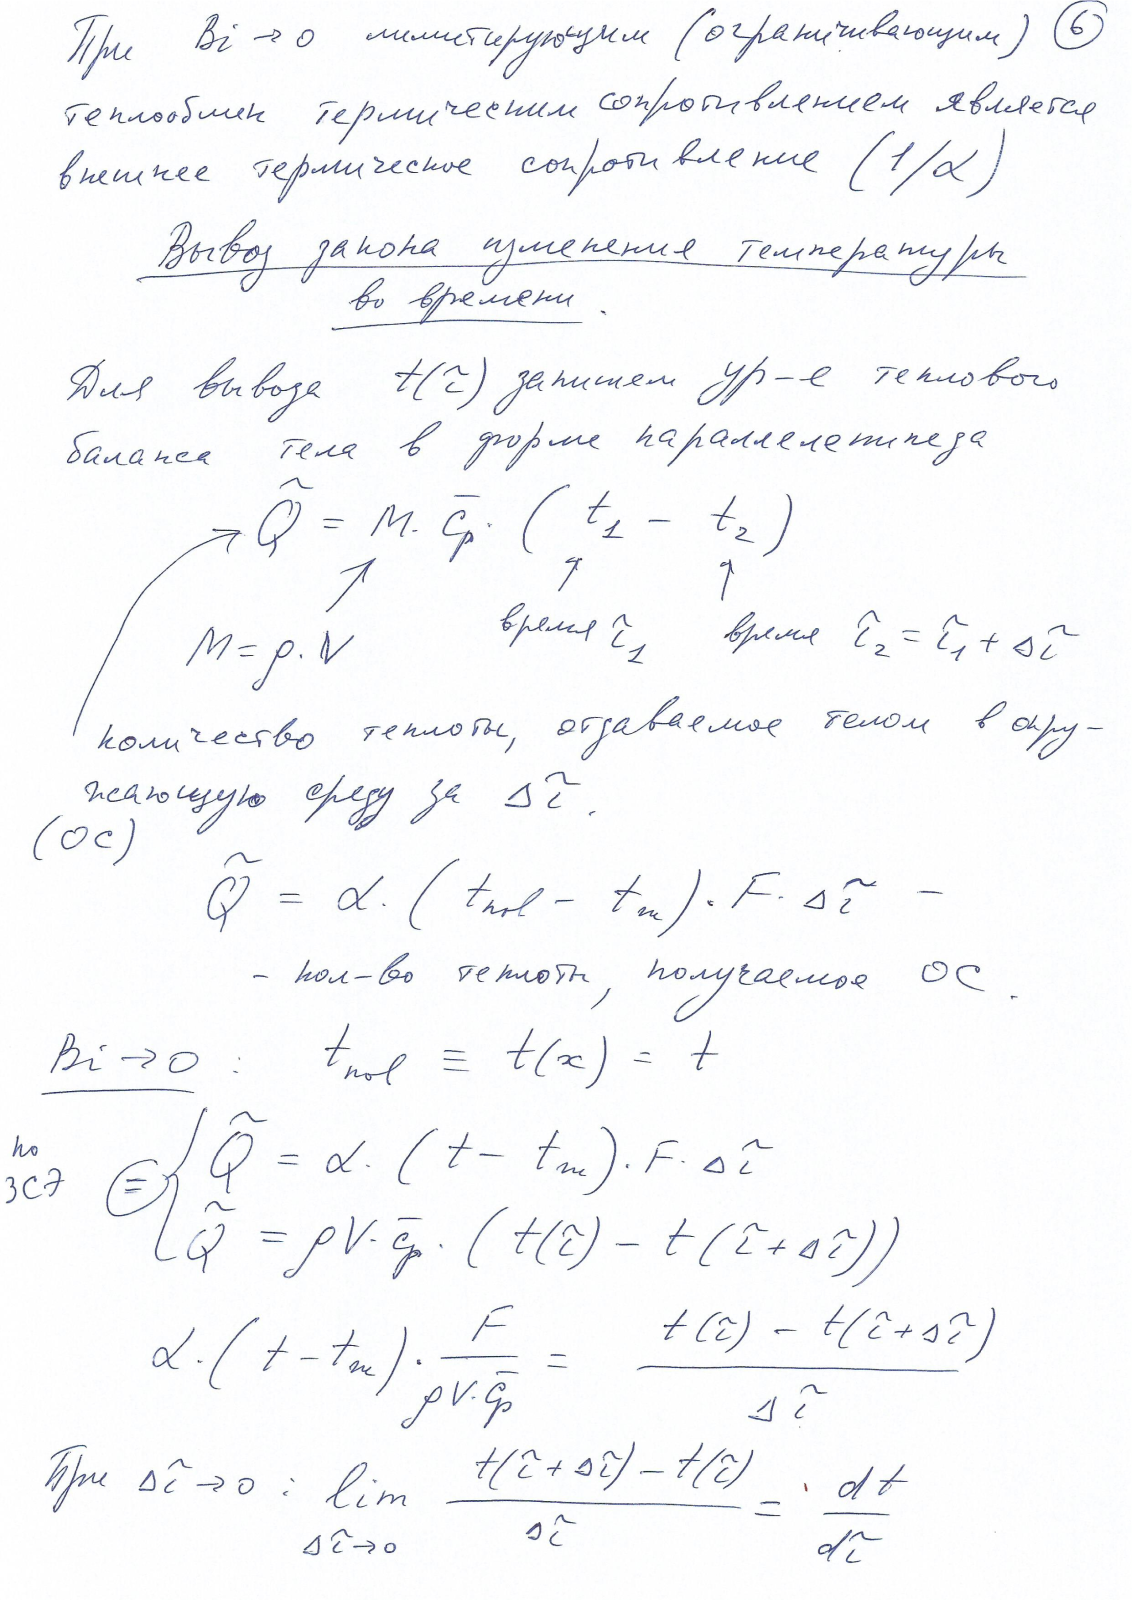 При Bi → 0 лимитирующим (ограничивающим) ⑥
теплообмен термическим сопротивлением является
внешнее термическое сопротивление (1/α)
Вывод закона изменения температуры
во времени.
Для вывода t(τ̃) запишем ур-е теплового
баланса тела в форме параллелепипеда
Q̃ = M · c̄p · (t₁ − t₂)
M = ρ · V
время τ̃₁ время τ̃₂ = τ̃₁ + Δτ̃
количество теплоты, отдаваемое телом в окру-
жающую среду за Δτ̃.
(ОС)
Q̃ = α · (tпов − tж) · F · Δτ̃ −
- кол-во теплоты, получаемое ОС.
Bi → 0 : tпов ≡ t(x) = t
по
ЗСЭ
= { Q̃ = α · (t − tж) · F · Δτ̃
Q̃ = ρV · c̄p · (t(τ̃) − t(τ̃ + Δτ̃))
α · (t − tж) · F / ρV · c̄p = t(τ̃) − t(τ̃ + Δτ̃) / Δτ̃
При Δτ̃ → 0 : lim Δτ̃→0 t(τ̃ + Δτ̃) − t(τ̃) / Δτ̃ = dt / dτ̃